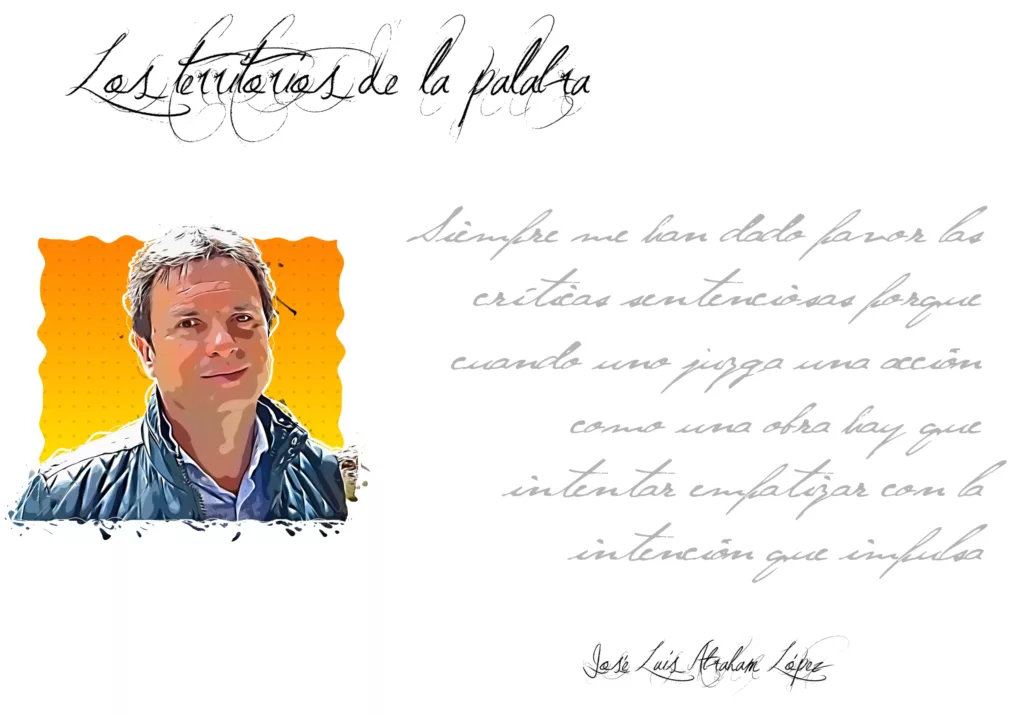 Los territorios de la palabra
Siempre me han dado pavor las
críticas sentenciosas porque
cuando uno juzga una acción
como una obra hay que
intentar empatizar con la
intención que impulsa
José Luis Abraham López